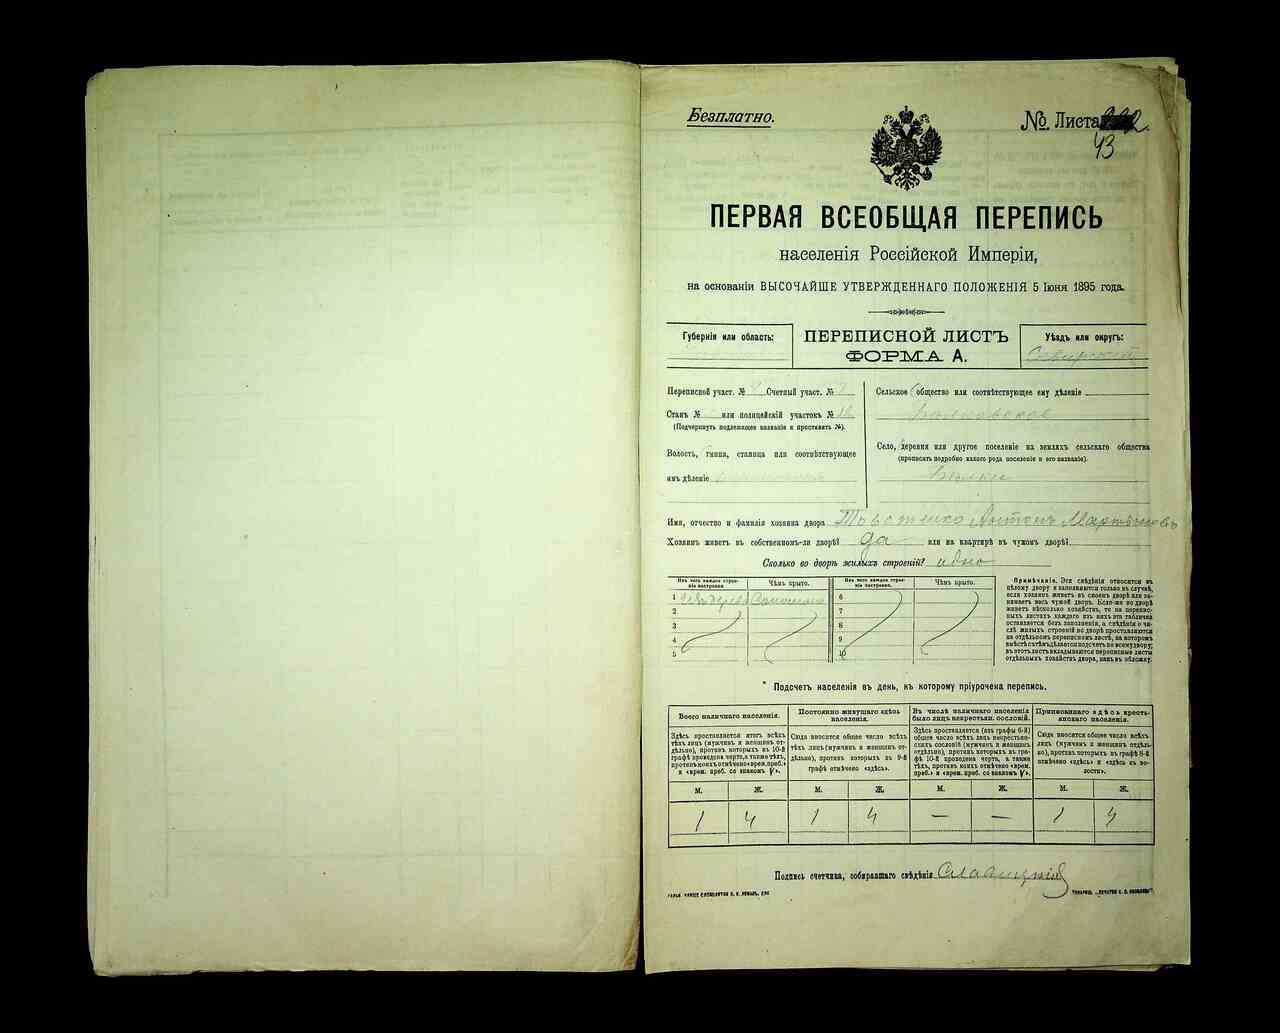 Безплатно.
№ Листа
43
ПЕРВАЯ ВСЕОБЩАЯ ПЕРЕПИСЬ
населенія Россійской Имперіи,
на основаніи ВЫСОЧАЙШЕ УТВЕРЖДЕННАГО ПОЛОЖЕНІЯ 5 Іюня 1895 года.
Губернія или область:
ПЕРЕПИСНОЙ ЛИСТЪ
ФОРМА А.
Уѣздъ или округъ:
Переписной участ. № Счетный участ. №
Станъ № или полицейскій участокъ №
(Подчеркнуть подлежащее названіе и проставить №).
Волость, гмина, станица или соотвѣтствующее
имъ дѣленіе
Сельское общество или соотвѣтствующее ему дѣленіе
Село, деревня или другое поселеніе на земляхъ сельскаго общества
(прописать подробно какого рода поселеніе и его названіе).
Имя, отчество и фамилія хозяина двора Антонъ
Хозяинъ живетъ въ собственномъ-ли дворѣ? да или на квартирѣ въ чужомъ дворѣ?
Сколько во дворѣ жилыхъ строеній? одно
Изъ чего каждое строеніе построено.
Чѣмъ крыто.
Изъ чего каждое строеніе построено.
Чѣмъ крыто.
1 изъ дерева Соломою
2
3
4
5
6
7
8
9
10
Примѣчаніе. Эти свѣдѣнія относятся къ
цѣлому двору и заполняются только въ случаѣ,
если хозяинъ живетъ въ своемъ дворѣ или занимаетъ
весь чужой дворъ. Если-же во дворѣ
живетъ нѣсколько хозяйствъ, то на переписныхъ
листахъ каждаго изъ нихъ эта табличка
оставляется безъ заполненія, а свѣдѣнія о числѣ
жилыхъ строеній во дворѣ проставляются
на отдѣльномъ переписномъ листѣ, на которомъ
вмѣстѣ съ тѣмъ дѣлается подсчетъ по всему двору;
въ этотъ листъ вкладываются переписные листы
отдѣльныхъ хозяйствъ двора, какъ въ обложку.
* Подсчетъ населенія въ день, къ которому пріурочена перепись.
Всего наличнаго населенія.
Здѣсь проставляется итогъ всѣхъ
тѣхъ лицъ (мужчинъ и женщинъ отдѣльно),
противъ которыхъ въ 10-й
графѣ проведена черта, а также тѣхъ,
противъ коихъ отмѣчено «врем. преб.»
и «врем. преб. со знакомъ V».
Постоянно живущаго здѣсь
населенія.
Сюда вносится общее число всѣхъ
тѣхъ лицъ (мужчинъ и женщинъ отдѣльно),
противъ которыхъ въ 9-й
графѣ отмѣчено «здѣсь».
Въ числѣ наличнаго населенія
было лицъ некрестьян. сословій.
Здѣсь проставляется (изъ графы 6-й)
общее число всѣхъ лицъ некрестьянскихъ
сословій (мужчинъ и женщинъ
отдѣльно), противъ которыхъ въ графѣ
10-й проведена черта, а также
тѣхъ, противъ коихъ отмѣчено «врем.
преб.» и «врем. преб. со знакомъ V».
Приписаннаго здѣсь крестьянскаго
населенія.
Сюда вносится общее число всѣхъ
лицъ (мужчинъ и женщинъ отдѣльно),
противъ которыхъ въ графѣ 8-й
отмѣчено «здѣсь» и «здѣсь въ волости».
М. Ж. М. Ж. М. Ж. М. Ж.
1 4 1 4 — — 1 4
Подпись счетчика, собиравшаго свѣдѣнія